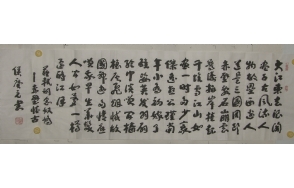 大江東去浪淘
盡千古風流人
物故壘西邊人
道是三國周郎
赤壁亂石崩雲
驚濤拍岸捲起
千堆雪江山如
畫一時多少豪
傑遙想公瑾當
年小喬初嫁了
雄姿英發羽扇
綸巾談笑間
灰飛煙滅故
國神遊多情應
笑我早生華髮
人如夢一
還酹江月
蘇軾詞念奴嬌
赤壁懷古